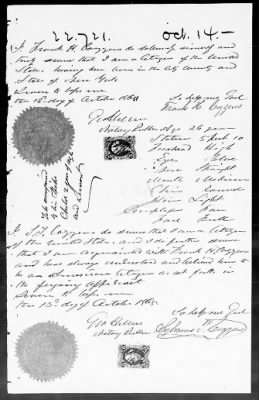 22.721. Oct. 14 -
I, Frank H. Cozzens do solemnly sincerely and
truly swear that I am a Citizen of the United
States, having been born in the City County and
State of New York
Sworn to before me
the 13th day of October 1861
So help me God
Frank H. Cozzens
Geo
Notary Public
Age 26 years
Stature 5 feet 10
Forehead High
Eyes Blue
Nose Straight
Mouth Medium
Chin Round
Hair Light
Complexion Fair
Face Full
To be accompanied
by his Wife
Child 2 years
and Servant
I, Cozzens do swear that I am a Citizen
of the United States, and I do further swear
that I am acquainted with Frank H. Cozzens
and have always understood and believed him to
be an American Citizen as set forth in
the foregoing Affidavit
Sworn to before me
the 13th day of October 1861
So help me God
Geo
Notary Public
Cozzens